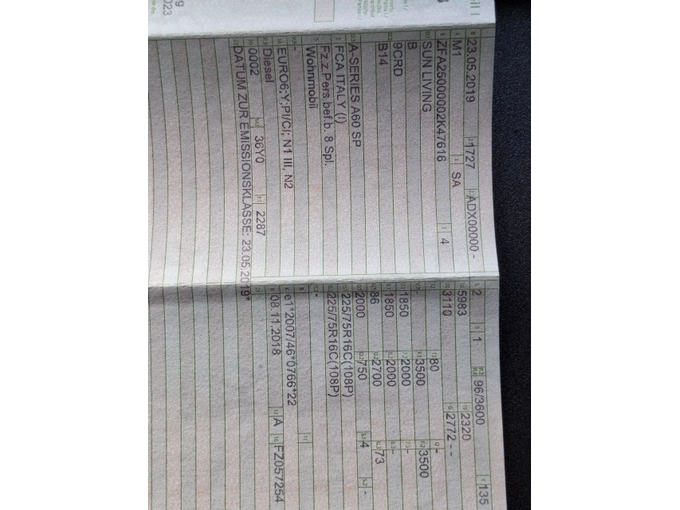 23.05.2019 1727 ADX00000 -
M1 SA
ZFA25000002K47616 4
SUN LIVING
B
9CRD
B14
A-SERIES A60 SP
FCA ITALY (I)
Fz.z.Pers.bef.b. 8 Spl.
Wohnmobil
-
EURO6;Y;PI/CI; N1 III, N2
Diesel
0002 36Y0 2287
DATUM ZUR EMISSIONSKLASSE: 23.05.2019*
2 1 96/3600 135
5983 2320
3110 2772 - -
80 -
3500 3500
1850 2000 -
1850 2000 -
86 2700 73
2000 750 4 -
225/75R16C(108P)
225/75R16C(108P)
-
e1*2007/46*0766*22
08.11.2018 A FZ057254